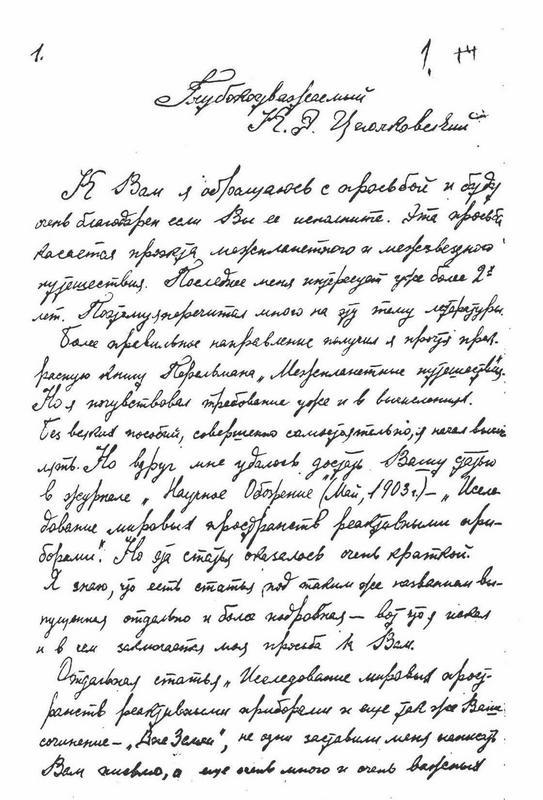 1.
1. 74
Глубокоуважаемый
К. Э. Циолковский
К Вам я обращаюсь с просьбой и буду
очень благодарен если Вы ее исполните. Эта просьба
касается проэкта межпланетного и межзвездного
путешествия. Последнее меня интересует уже более 2х
лет. Поэтому я перечитал много на эту тему литературы.
Более правильное направление получил я прочтя прек-
расную книгу Перельмана „Межпланетные путешествия".
Но я почувствовал требование уже и в вычислениях.
Без всяких пособий, совершенно самостоятельно, я начал вычис-
лять. Но вдруг мне удалось достать Вашу статью
в журнале „Научное Обозрение (Май, 1903 г.) – „Иссле-
дование мировых пространств реактивными при-
борами". Но эта статья оказалось очень краткой.
Я знаю, что есть статья под таким же названием вы-
пущенная отдельно и более подробная – вот что я искал
и в чем заключается моя просьба к Вам.
Отдельная статья „Исследование мировых прост-
ранств реактивными приборами и еще так же Ваше
сочинение – „Вне Земли", не одни заставили меня написать
Вам письмо, а еще очень много и очень важных